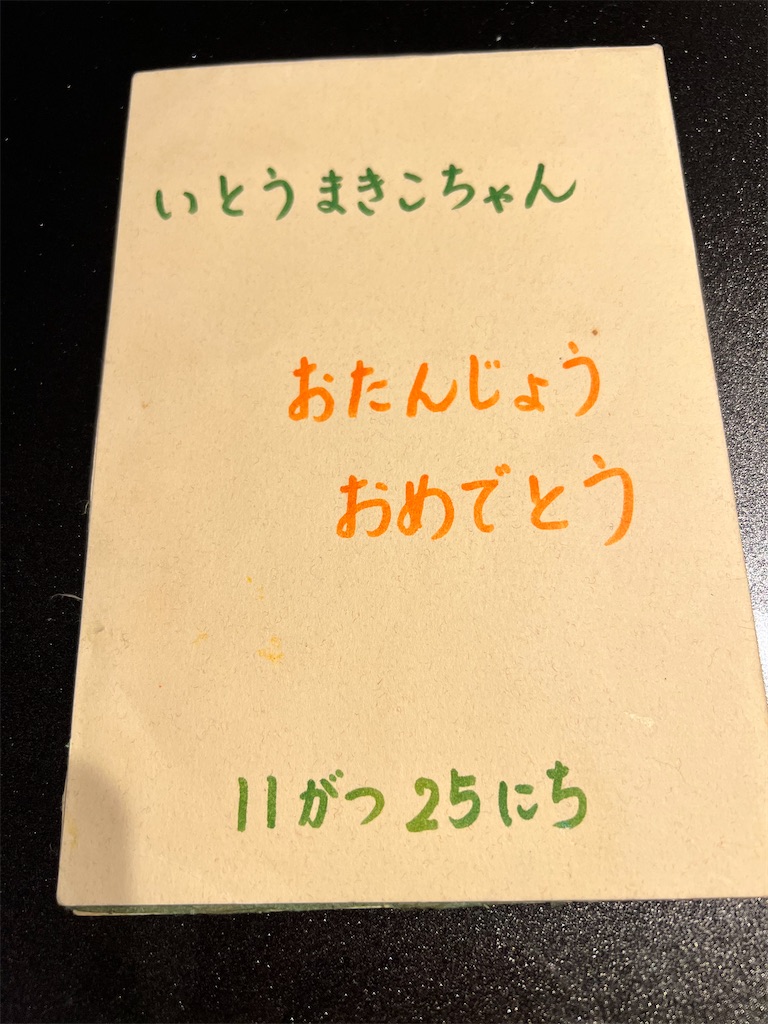 いとうまきこちゃん
おたんじょう
おめでとう
11がつ25にち